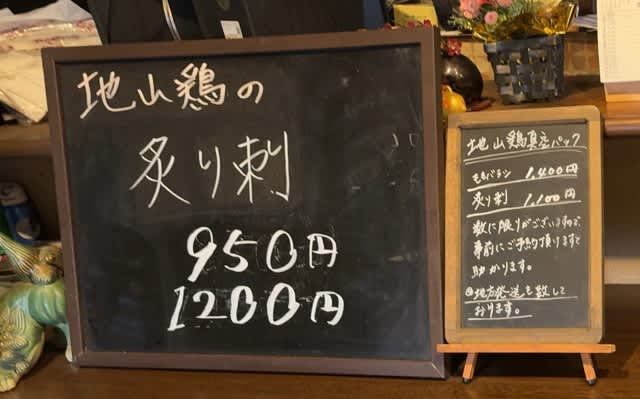 地山鶏の
炙り刺
950円
1200円
地山鶏真空パック
ももバラシ 1,400円
炙り刺 1,100円
数に限りがございますので、
事前にご予約頂りますと
助かります。
地方発送も致して
おります。